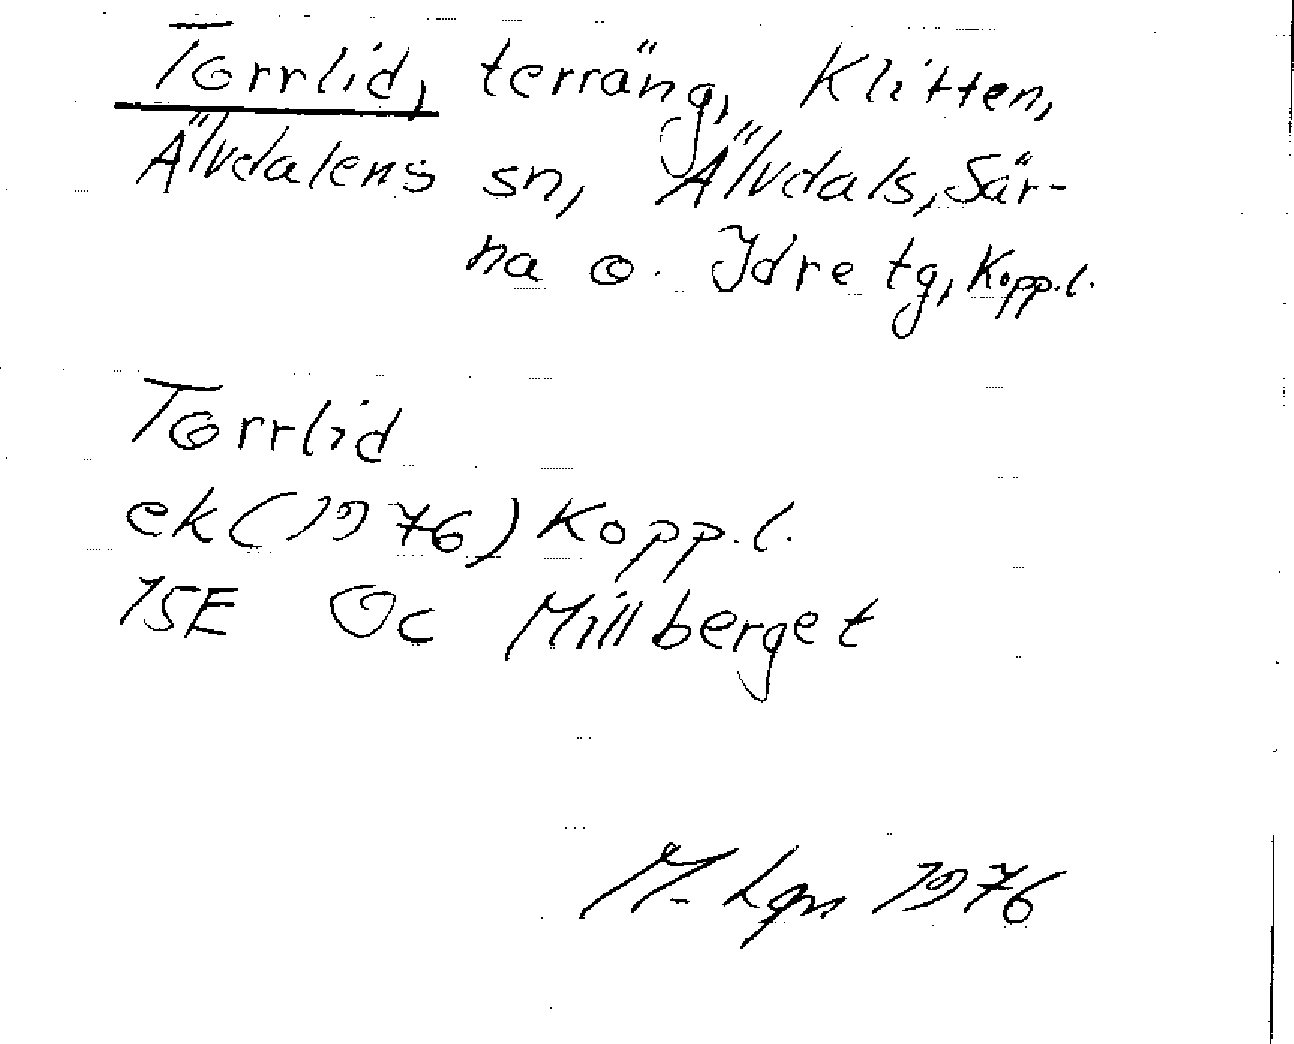 Torrlid, terräng, Klitten,
Älvdalens sn, Älvdals, Sär-
na o. Idre tg, Kopp.l.
Torrlid
ek (1976) Kopp.l.
15E 0c Millberget
M. Lgn 1976